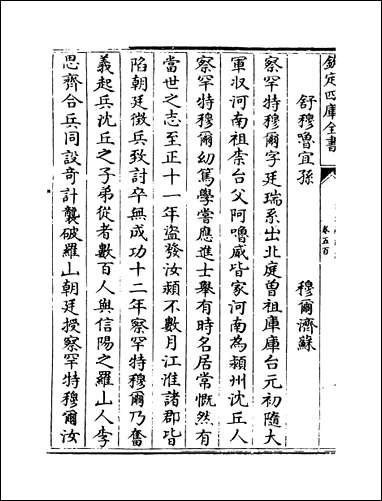 欽定四庫全書
卷五百
舒穆嚕宜孫
穆爾濟蘇
察罕特穆爾字廷瑞系出北庭曽祖庫庫台元初隨大
軍収河南祖柰台父阿嚕威皆家河南為潁州沈丘人
察罕特穆爾幼篤學嘗應進士舉有時名居常慨然有
當世之志至正十一年盜發汝潁不數月江淮諸郡皆
陷朝廷徵兵致討卒無成功十二年察罕特穆爾乃奮
義起兵沈丘之子弟從者數百人與信陽之羅山人李
思齊合兵同設竒計襲破羅山朝廷授察罕特穆爾汝